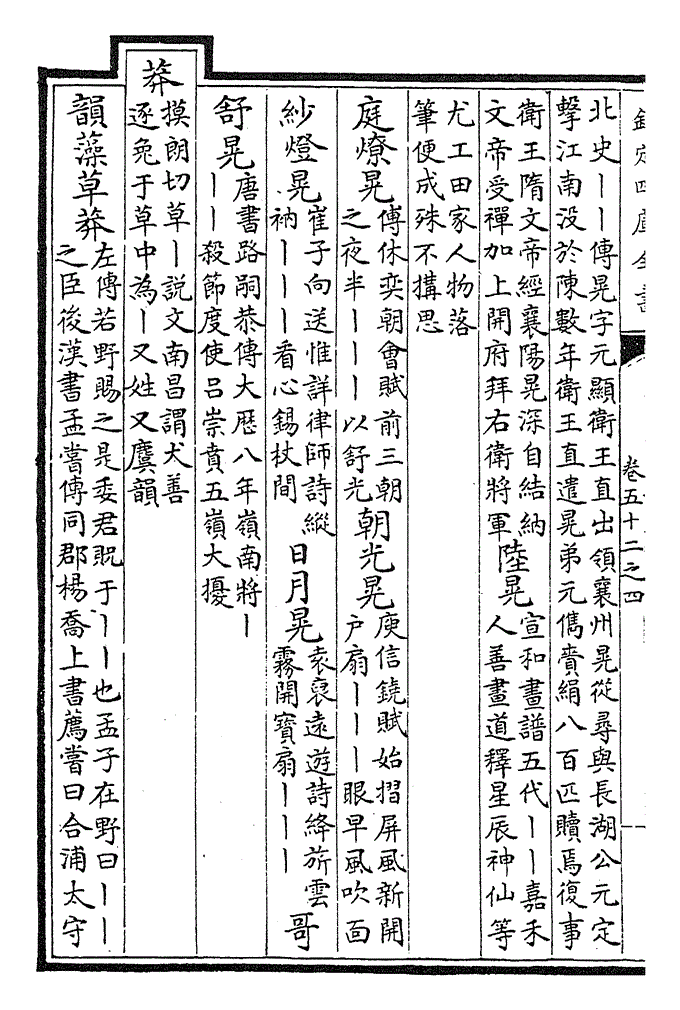 欽定四庫全書
卷五十二之四
北史丨丨傳晃字元顯衛王直出領襄州晃從尋與長湖公元定
擊江南没於陳數年衛王直遣晃弟元儁賫絹八百匹贖焉復事
衛王隋文帝經襄陽晃深自結納
文帝受禪加上開府拜右衛將軍
陸晃
宣和畫譜五代丨丨嘉禾
人善畫道釋星辰神仙等
尤工田家人物落
筆便成殊不搆思
庭燎晃
傅休奕朝會賦前三朝
之夜半丨丨丨以舒光
朝光晃
庾信鏡賦始摺屏風新開
户扇丨丨丨眼早風吹面
紗燈晃
崔子向送惟詳律師詩縱
衲丨丨丨看心錫杖間
日月晃
袁裒遠遊詩絳斾雲
霧開寶扇丨丨丨
哥
舒晃
唐書路嗣恭傳大歴八年嶺南將丨
丨丨殺節度使吕崇賁五嶺大擾
莽
摸朗切草丨説文南昌謂犬善
逐兔于草中為丨又姓又麌韻
韻藻草莽
左傳若野賜之是委君貺于丨丨也孟子在野曰丨丨
之臣後漢書孟嘗傳同郡楊喬上書薦嘗曰合浦太守